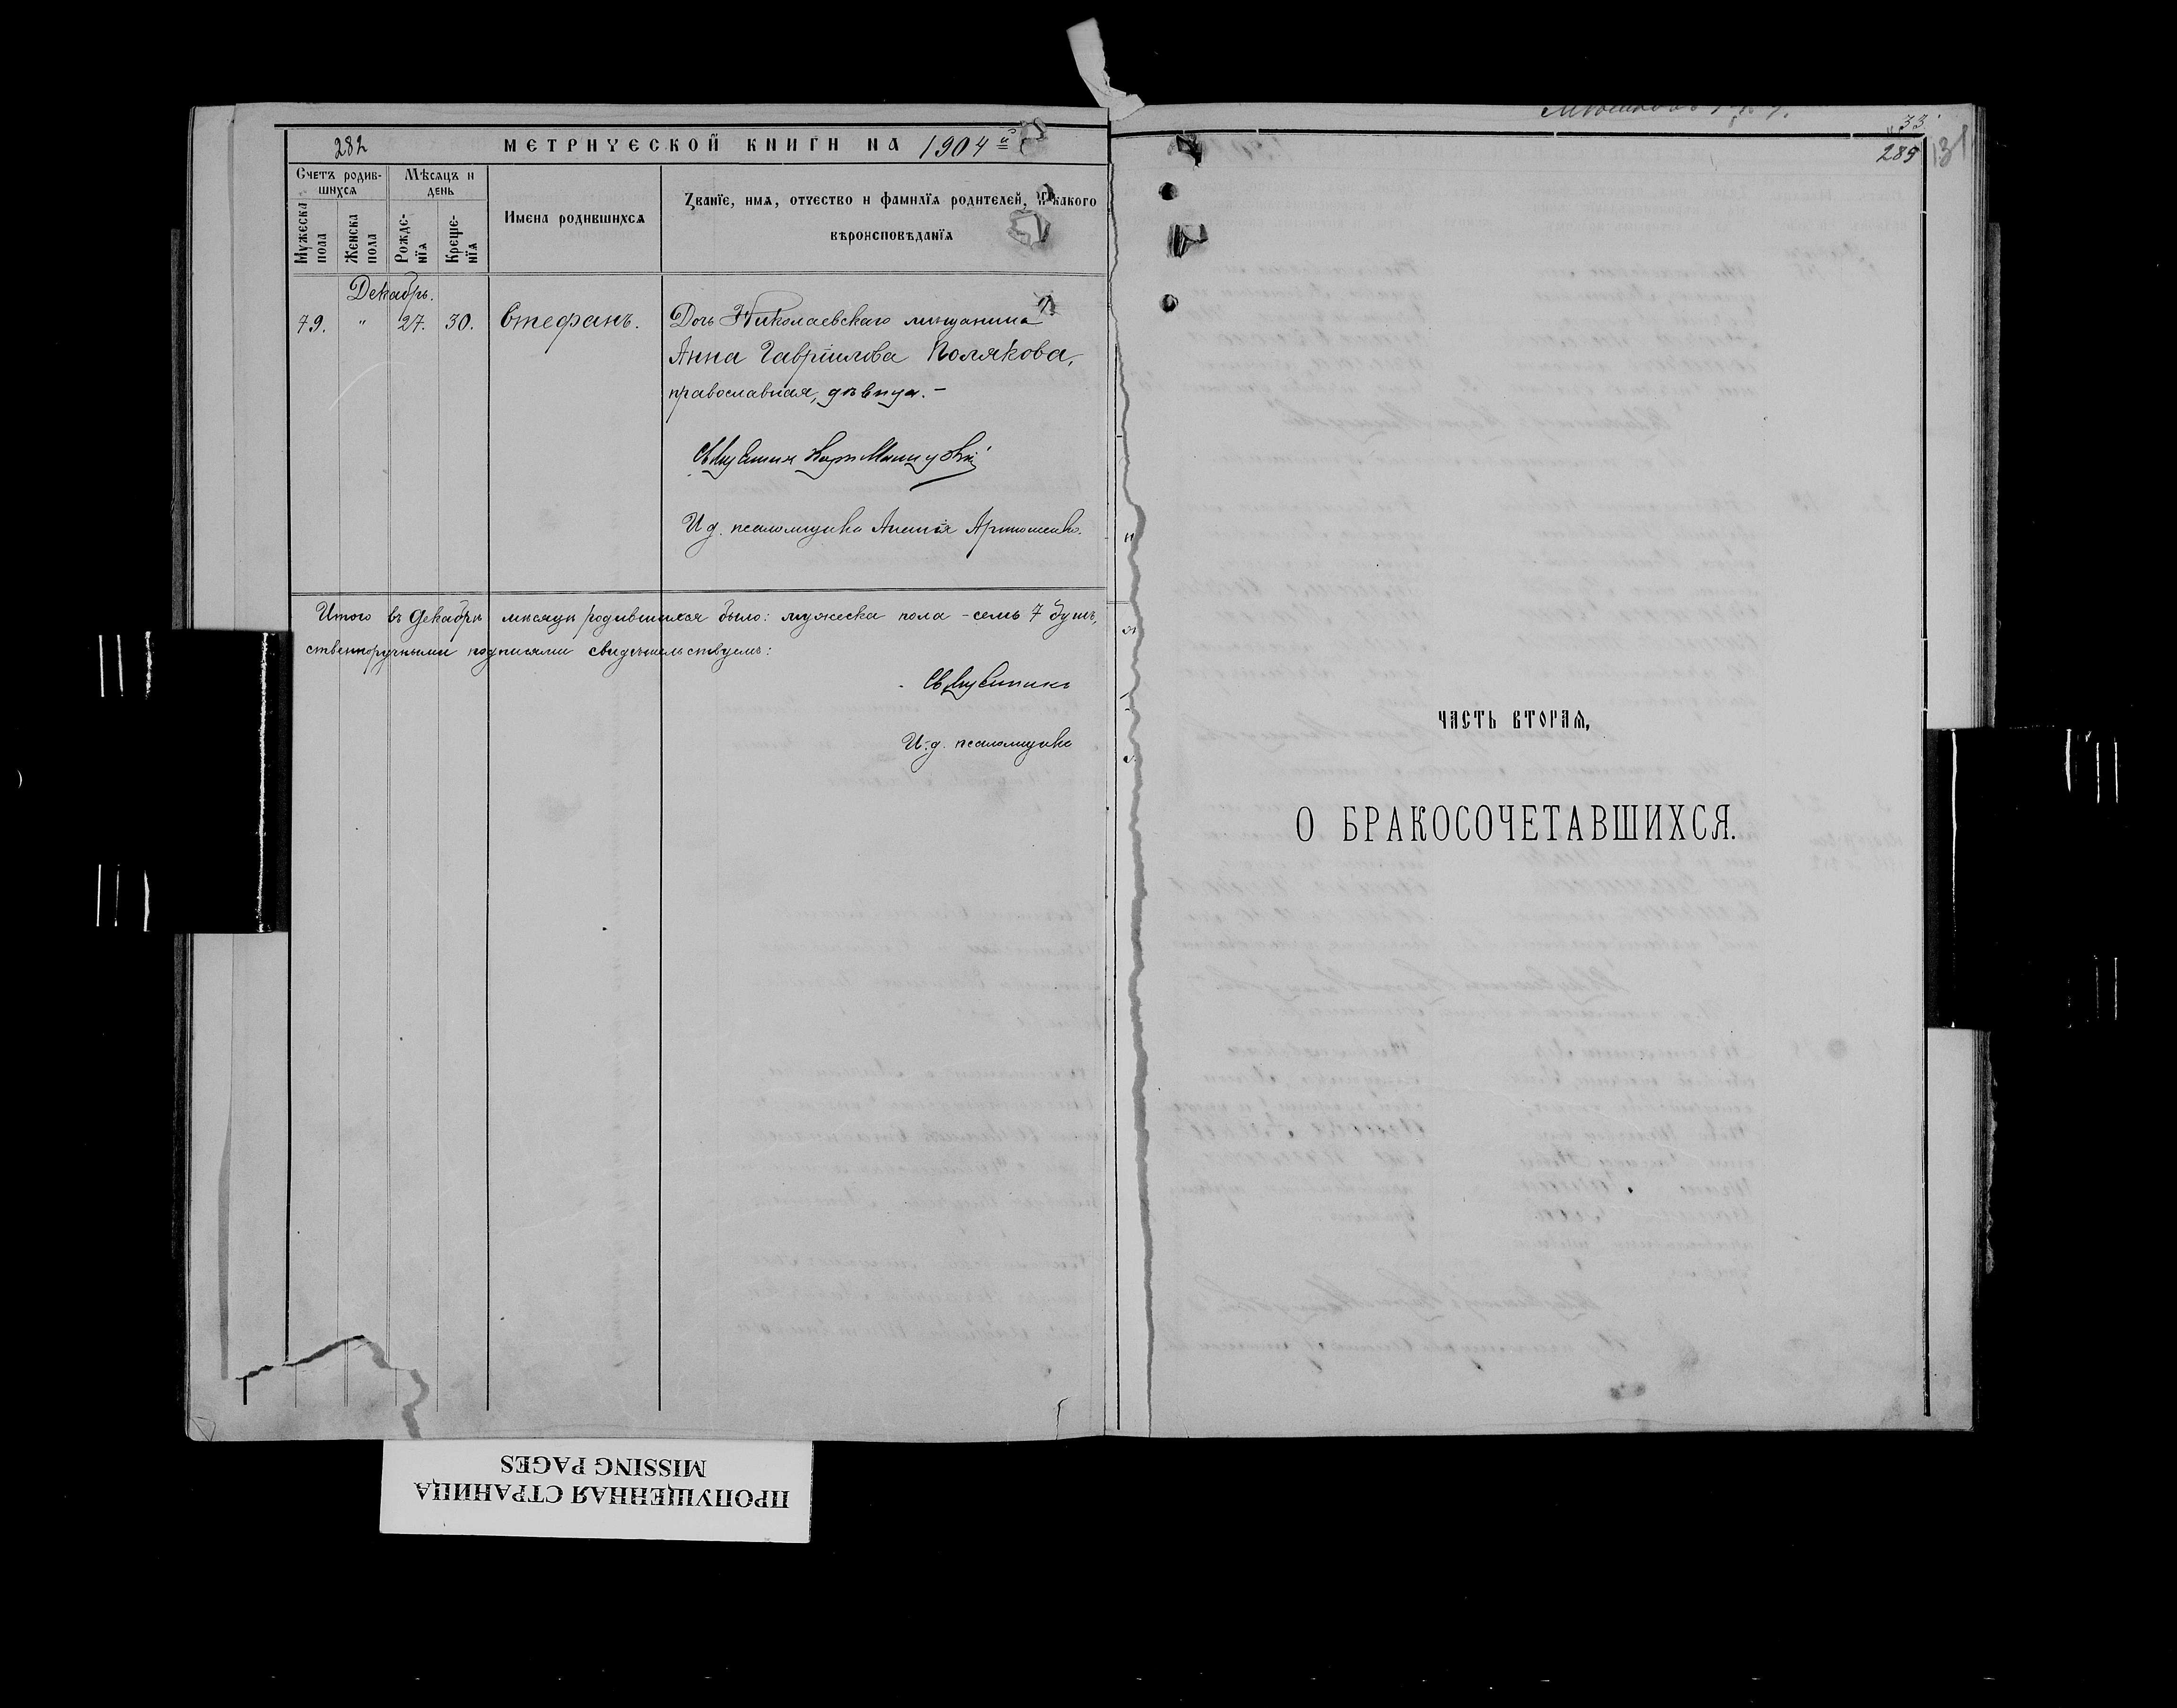 282 МЕТРИЧЕСКОЙ КНИГИ НА 1904 й
Счетъ родив-
шихся
Мѣсяцъ и
день
Мужеска
пола
Женска
пола
Рожде-
нїя
Креще-
нїя
Имена родившихся
Званїе, имя, отчество и фамилїя родителей, и какого
вѣроисповѣданїя
Декабрь.
79. " 27. 30. Стефанъ.
Дочь Николаевскаго мѣщанина
Анна Гавріилова Полякова,
православная, дѣвица. –
Священникъ
И д. псаломщика
Итого въ Декабрѣ мѣсяцѣ родившихся было: мужеска пола – семь 7 душъ,
ственноручными подписями свидѣтельствуемъ:
Священникъ
И. д. псаломщика
33
285
131
ЧАСТЬ ВТОРАЯ,
О БРАКОСОЧЕТАВШИХСЯ.
ПРОПУЩЕННАЯ СТРАНИЦА
MISSING PAGES